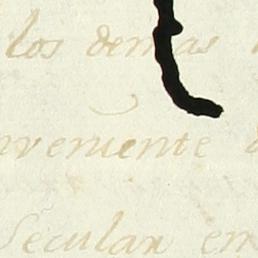 los demas
nveniente
Secular en